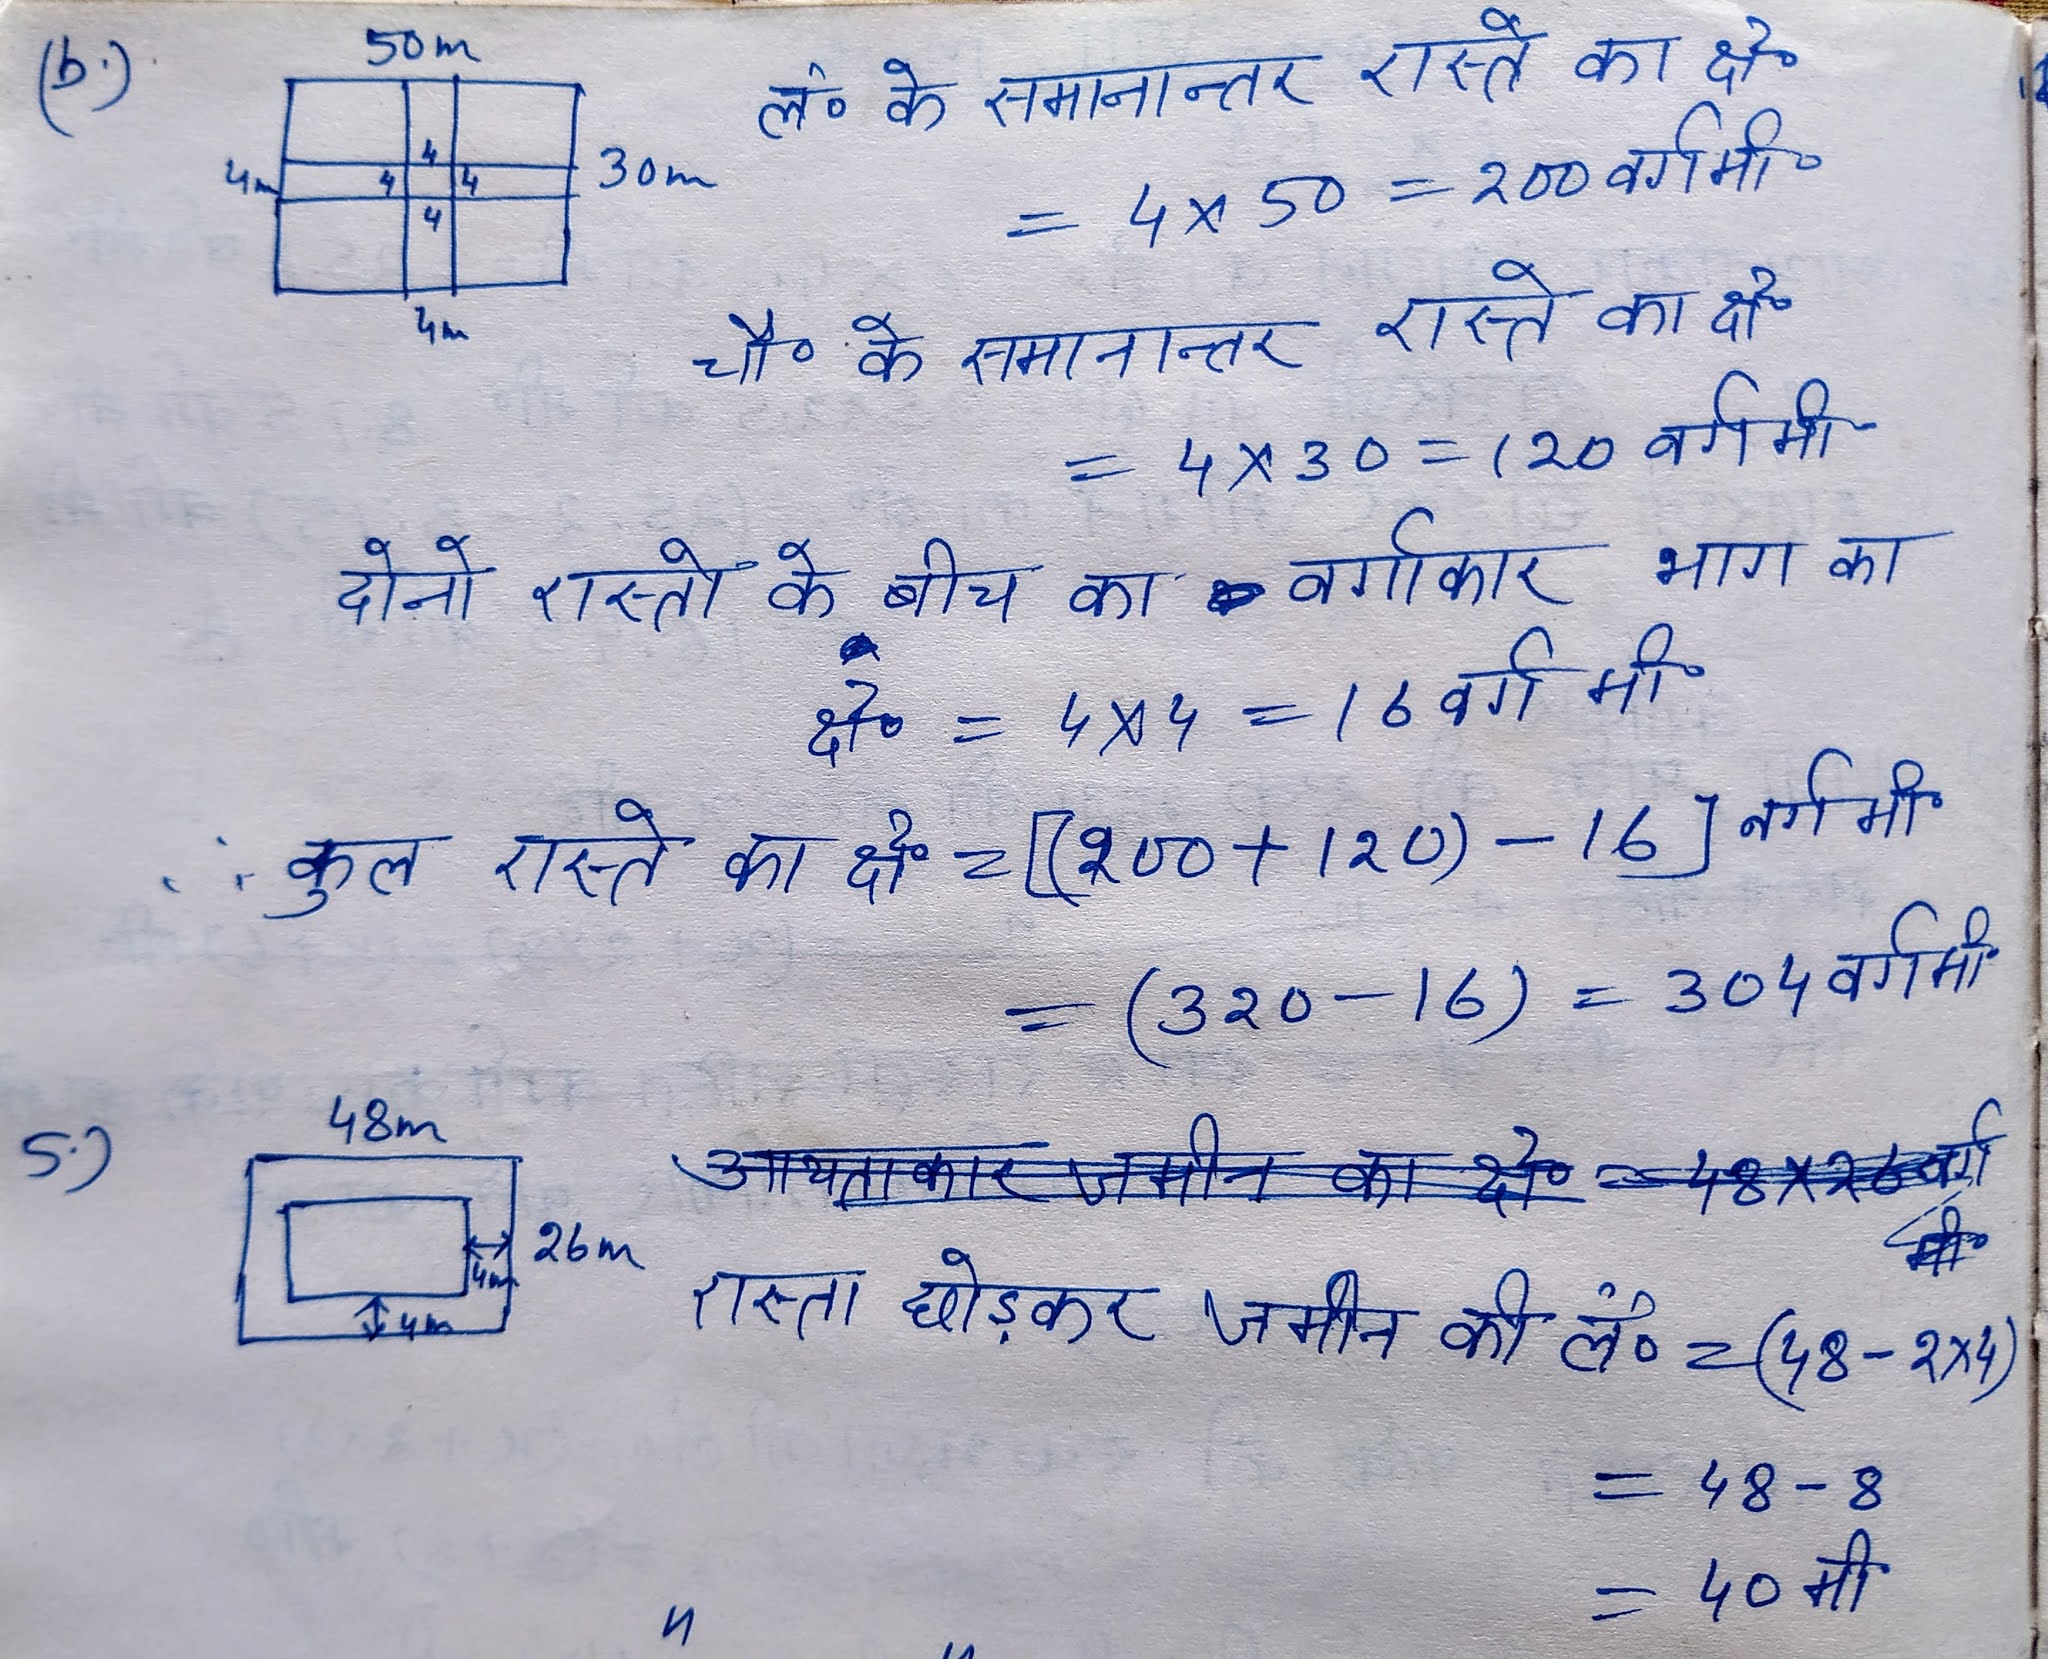 (b.)
50m
4m
4
4
4
4
30m
4m
लं० के समानान्तर रास्ते का क्षे०
= 4×50 = 200 वर्ग मी०
चौ० के समानान्तर रास्ते का क्षे०
= 4×30 = 120 वर्ग मी०
दोनो रास्तो के बीच का वर्गाकार भाग का
क्षे० = 4×4 = 16 वर्ग मी०
∴ कुल रास्ते का क्षे० = [(200+120) - 16] वर्ग मी०
= (320-16) = 304 वर्ग मी०
5.)
48m
26m
4m
4m
आयताकार जमीन का क्षे० = 48×26 वर्ग
मी०
रास्ता छोड़कर जमीन की लं० = (48-2×4)
= 48-8
= 40 मी०
〃 〃